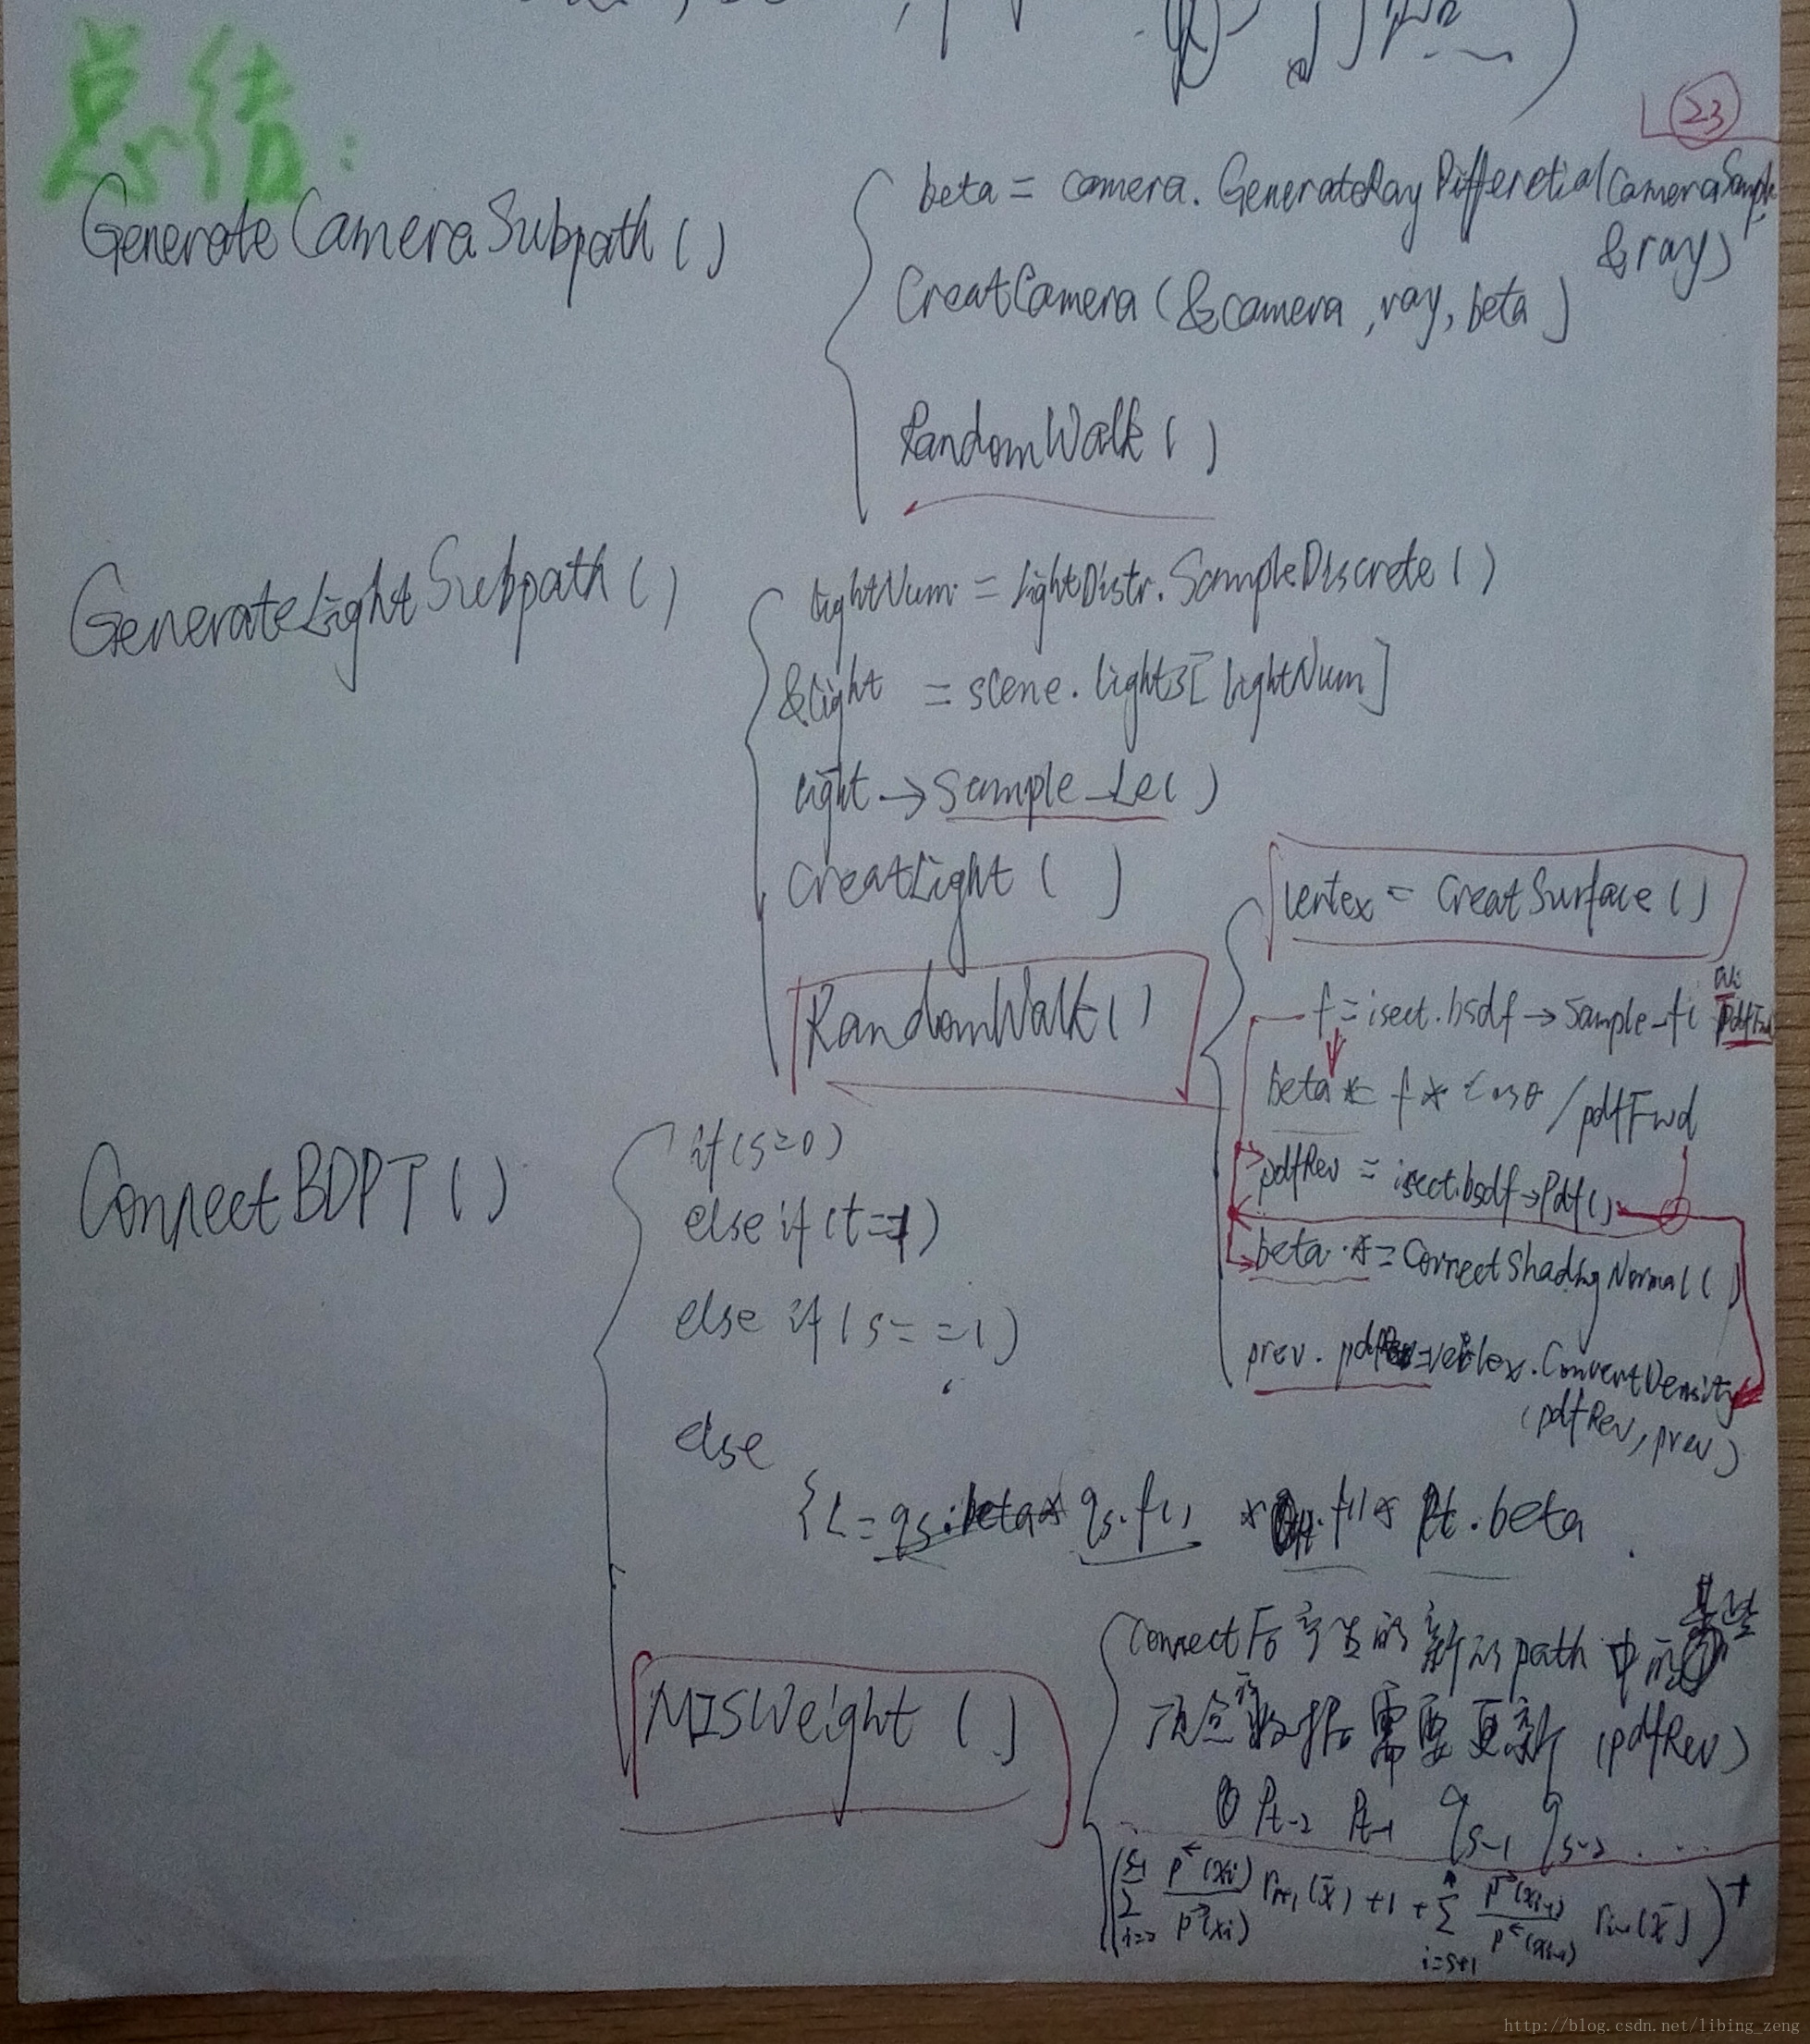 总结:
23
GenerateCameraSubpath()
beta = camera.GenerateRayDifferetial(CameraSample,
&ray)
CreatCamera(&camera, ray, beta)
RandomWalk()
GenerateLightSubpath()
lightNum = lightDistr.SampleDiscrete()
&light = scene.lights[lightNum]
light→Sample_Le()
CreatLight( )
RandomWalk()
Vertex = CreatSurface()
f = isect.bsdf→Sample_f( wi
pdfFwd
beta * f * cosθ / pdfFwd
pdfRev = isect.bsdf→Pdf()
beta * = CorrectShadingNormal()
prev. = vertex.ConvertDensity
(pdfRev, prev)
ConnectBDPT()
if(s=0)
else if(t=1)
else if(s==1)
else
{L = qs.beta * qs.f() * .f() * Pt.beta
MISWeight()
connect后产生的新的path中的某些
顶点数据需要更新(pdfRev)
Pt-2 Pt-1 qs-1 qs-2 ....
p←(xi) / p→(xi) (x̄) + 1 + Σ i=s+1
http://blog.csdn.net/libing_zeng